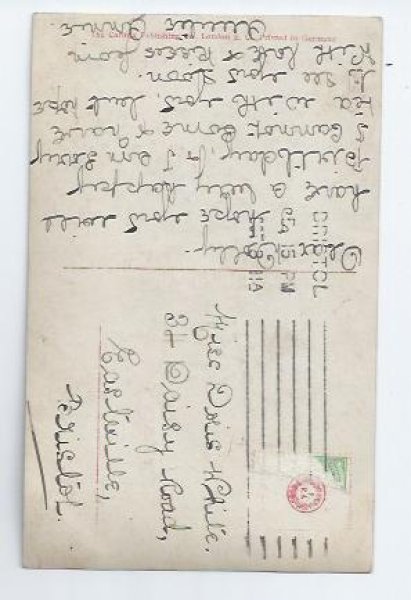 Dear Dolly
hope you will
have a very happy
birthday, & I am sorry
I cannot come & have
tea with you, but hope
to see you soon.
With lots of kisses from
Auntie Annie.
Publishing
London
Printed in Germany
BRISTOL
PM
Miss Doris White.
31 Daisy Road,
Eastville,
Bristol.